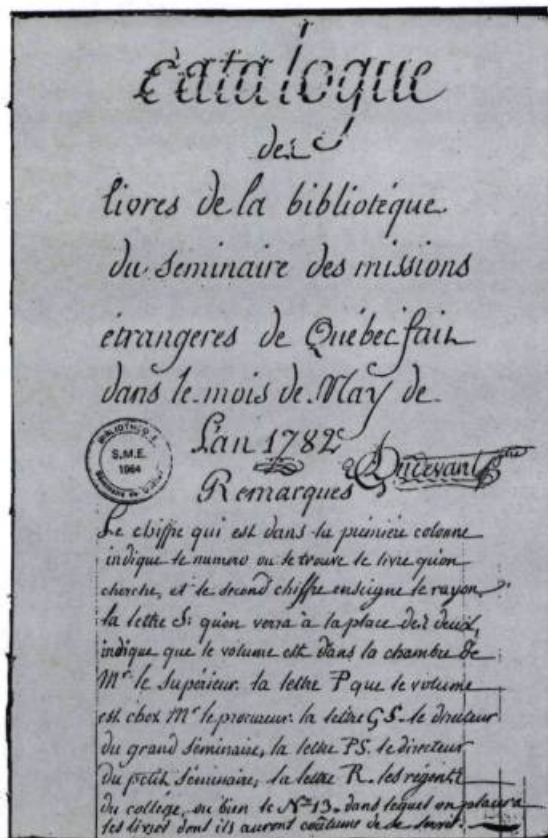 Catalogue
des
livres de la bibliotéque
du seminaire des missions
étrangeres de Québec fait
dans le mois de May de
L'an 1782
BIBLIOTHÈQUE
S.M.E.
1964
Séminaire de Québec
Remarques
Le chiffre qui est dans la première colonne
indique le numero ou se trouve le livre qu'on
cherche, et le second chiffre enseigne le rayon,
la lettre S: qu'on verra à la place des deux,
indique que le volume est dans la chambre de
Mr le Supérieur. la lettre P que le volume
est chex Mr le procureur. la lettre GS. le directeur
du grand séminaire, la lettre PS. le directeur
du petit séminaire, la lettre R. les régents
du college, ou bien le No 13. dans lequel on placera
les livres dont ils auront coûtume de se servir.